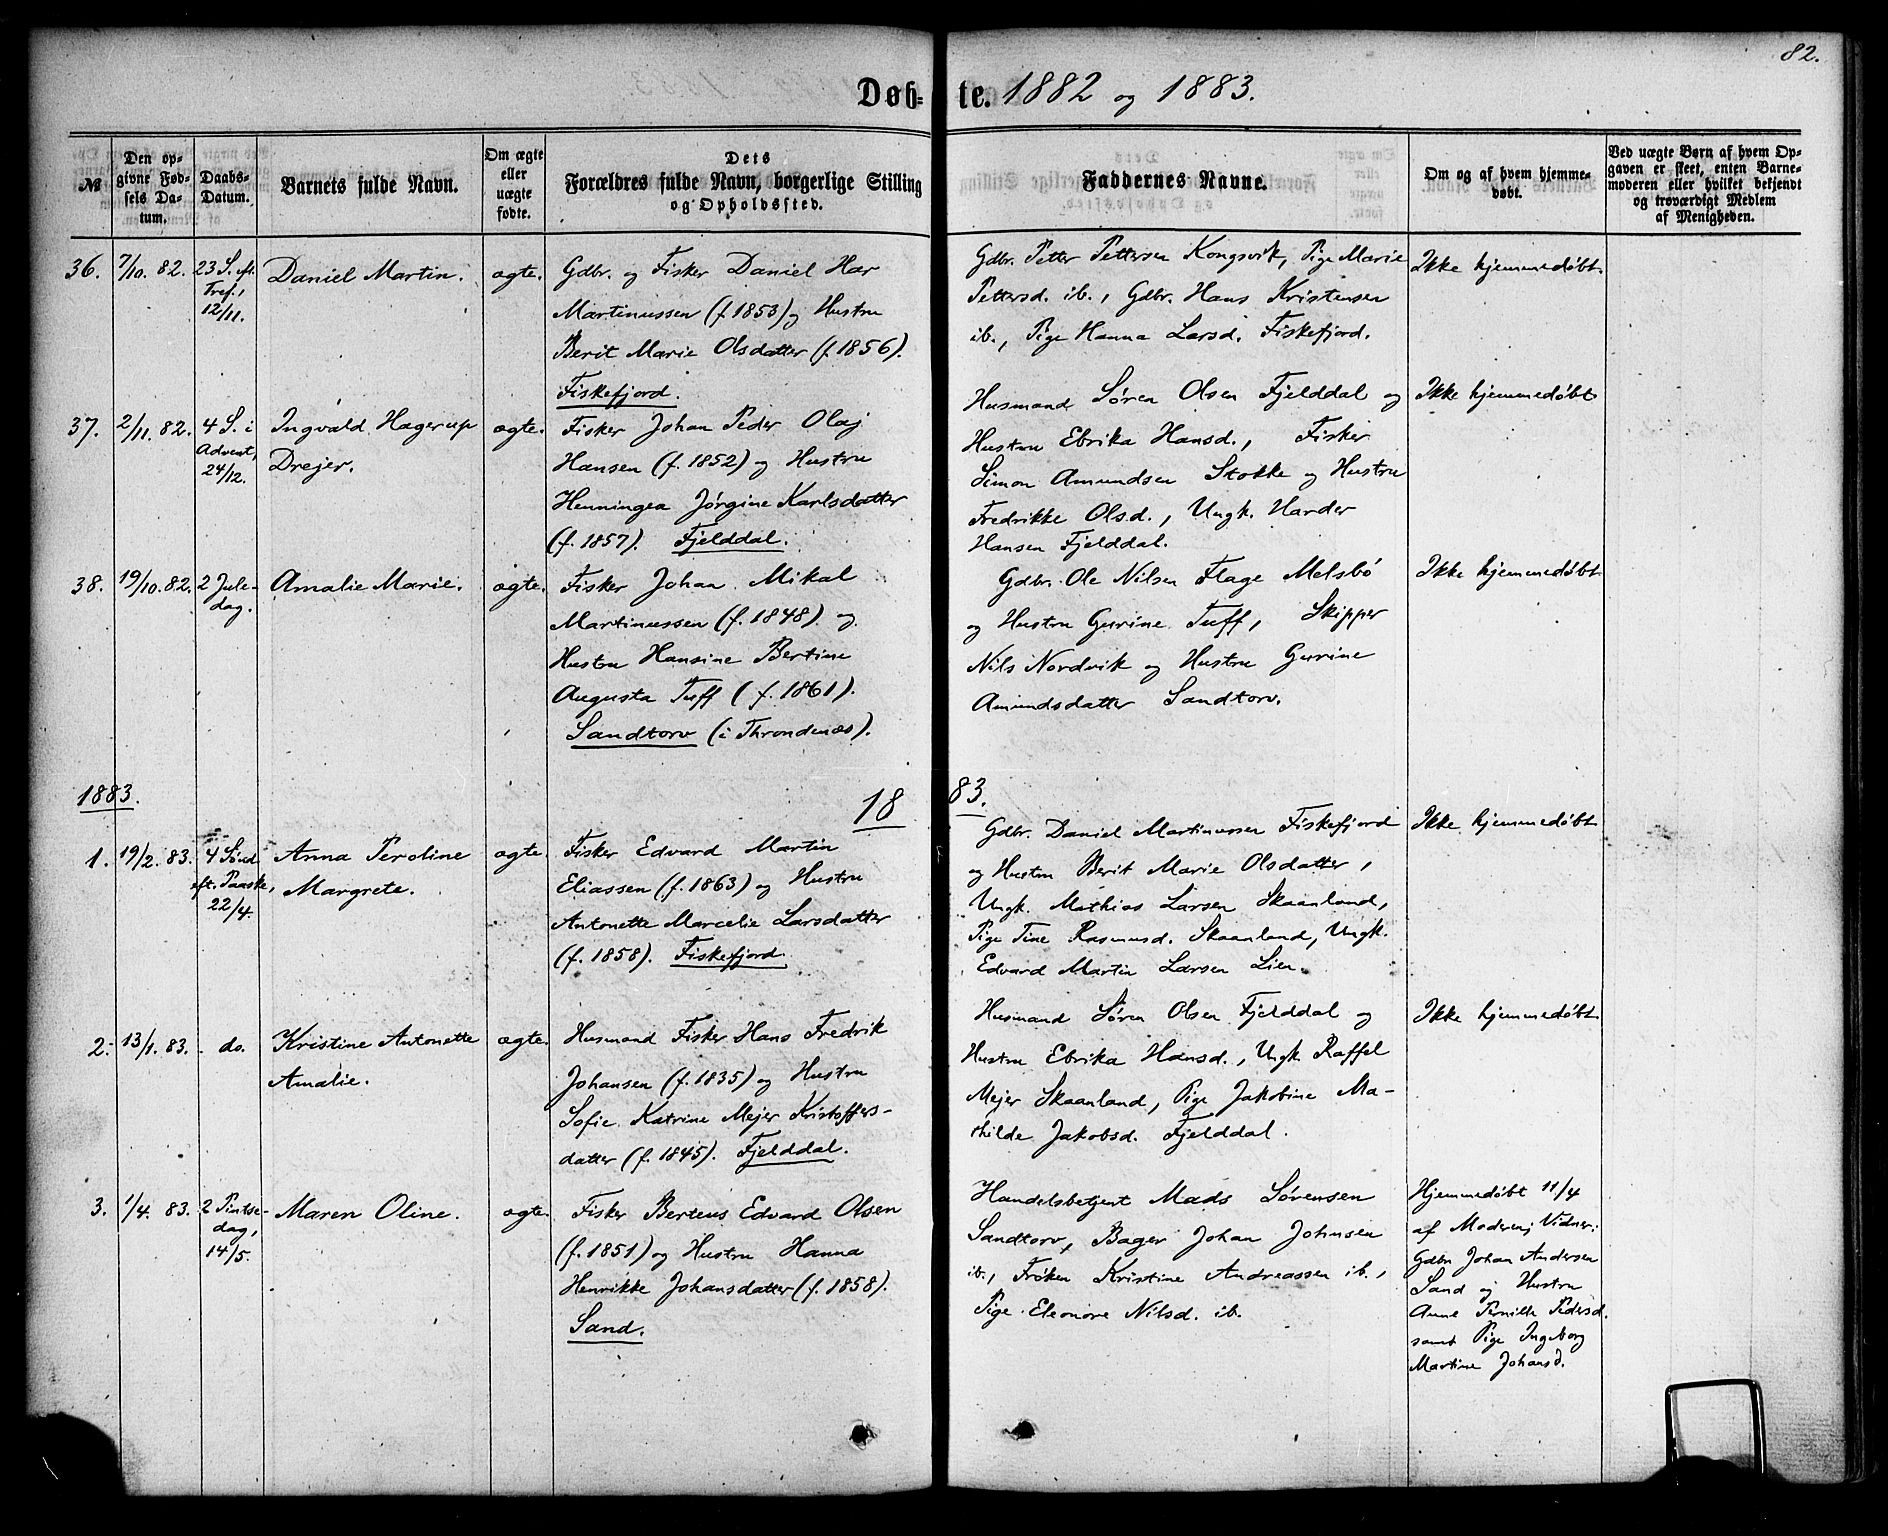 82.
Døbte. 1882 og 1883.
№
Den opgivne Fødsels Datum.
Daabs-Datum.
Barnets fulde Navn.
Om ægte eller uægte fødte.
Dets Forældres fulde Navn, borgerlige Stilling og Opholdssted.
Faddernes Navne.
Om og af hvem hjemmedøbt.
Ved uægte Børn af hvem Opgaven er skeet, enten Barnemoderen eller hvilket bekjendt og troværdigt Medlem af Menigheden.
36. 7/10. 82. 23 S. eft. Tref., 12/11.
Daniel Martin.
ægte.
Gdbr. og Fisker Daniel Hær
Martinussen (f. 1853) og Hustru
Berit Marie Olsdatter (f. 1856).
Fiskefjord.
Gdbr. Petter Pettersen Kongsvik, Pige Marie
Pettersd. ib., Gdbr. Hans Kristensen
ib., Pige Hanna Larsd. Fiskefjord.
Ikke hjemmedøbt.
37. 2/11. 82. 4 S. i Advent, 24/12.
Ingvald Hagerup
Drejer.
ægte.
Fisker Johan Peder Olaj
Hansen (f. 1852) og Hustru
Henningea Jørgine Karlsdatter
(f. 1857). Fjelddal.
Husmand Søren Olsen Fjelddal og
Hustru Ebrika Hansd., Fisker
Simon Amundsen Stokke og Hustru
Fredrikke Olsd., Ungk. Harder
Hansen Fjelddal.
Ikke hjemmedøbt
38. 19/10. 82. 2 Juledag.
Amalie Marie.
ægte.
Fisker Johan Mikal
Martinussen (f. 1848) og
Hustru Hansine Bertine
Augusta Tuff (f. 1861).
Sandtorv (i Throndenæs).
Gdbr. Ole Nilsen Flage Melsbö
og Hustru Gurine Tuff, Skipper
Nils Nordvik og Hustru Gurine
Amundsdatter Sandtorv.
Ikke hjemmedøbt
1883.
1883.
1. 19/2. 83. 4 Sönd. eft. Paaske, 22/4.
Anna Peroline
Margrete.
ægte.
Fisker Edvard Martin
Eliassen (f. 1863) og Hustru
Antonette Marcelie Larsdatter
(f. 1858). Fiskefjord.
Gdbr. Daniel Martinussen Fiskefjord
og Hustru Berit Marie Olsdatter,
Ungk. Mathias Larsen Skaanland,
Pige Tine Rasmusd. Skaanland, Ungk.
Edvard Martin Larsen Lien.
Ikke hjemmedøbt
2. 13/1. 83. do.
Kristine Antonette
Amalie.
ægte.
Husmand Fisker Hans Fredrik
Johansen (f. 1835) og Hustru
Sofie Katrine Mejer Kristoffers-
datter (f. 1845). Fjelddal.
Husmand Søren Olsen Fjelddal og
Hustru Ebrika Hansd., Ungk. Raffel
Mejer Skaanland, Pige Jakobine Ma-
thilde Jakobsd. Fjelddal.
Ikke hjemmedøbt
3. 1/4. 83. 2 Pintsedag, 14/5.
Maren Oline.
ægte.
Fisker Berteus Edvard Olsen
(f. 1851) og Hustru Hanna
Henrikke Johansdatter (f. 1858).
Sand.
Handelsbetjent Mads Sörensen
Sandtorv, Bager Johan Johnsen
ib., Frøken Kristine Andreassen ib.,
Pige Eleonore Nilsd. ib.
Hjemmedøbt 11/4
af Moderen; Vidner:
Gdbr. Johan Andersen
Sand og Hustru
Anne Pernille Pedersd.
samt Pige Ingeborg
Martine Johansd.